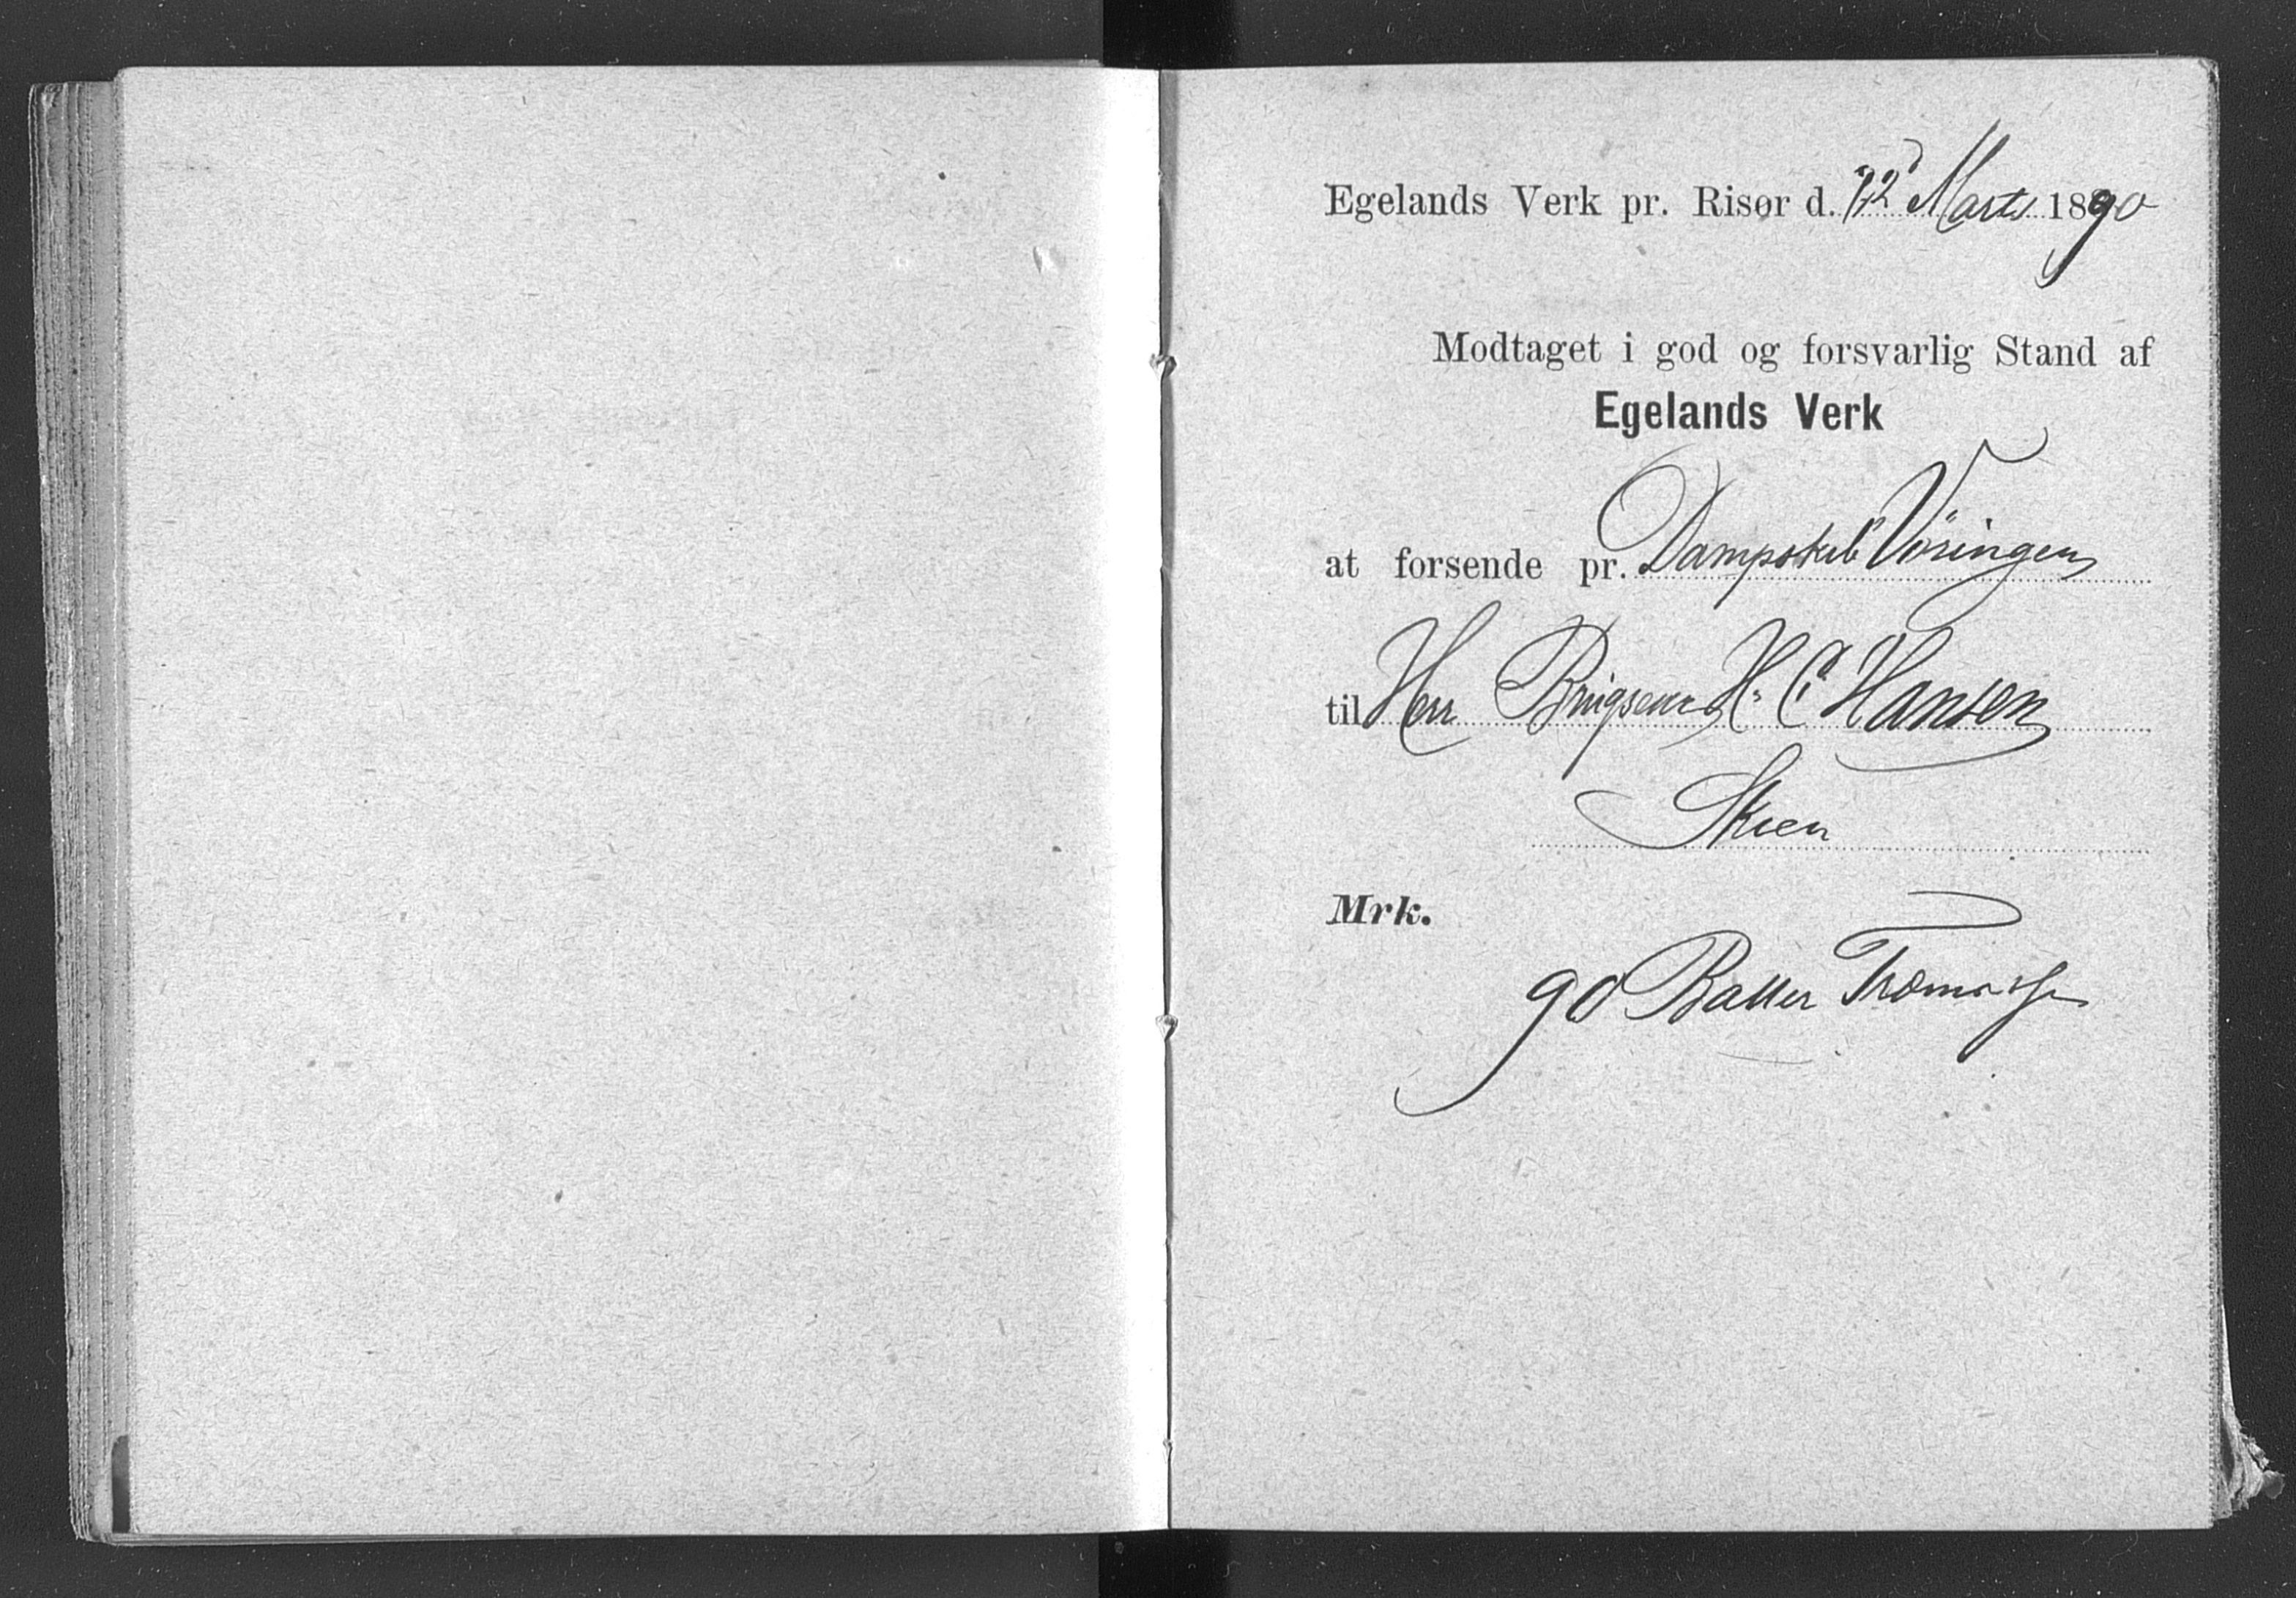 Egelands Verk pr. Risør d. 12 Marts 1890
Modtaget i god og forsvarlig Stand af
Egelands Verk
at forsende pr. Dampskib Vøringen
til Herr Brugseier H. C. Hansen
Skien
Mrk.
90 Baller Træmasse